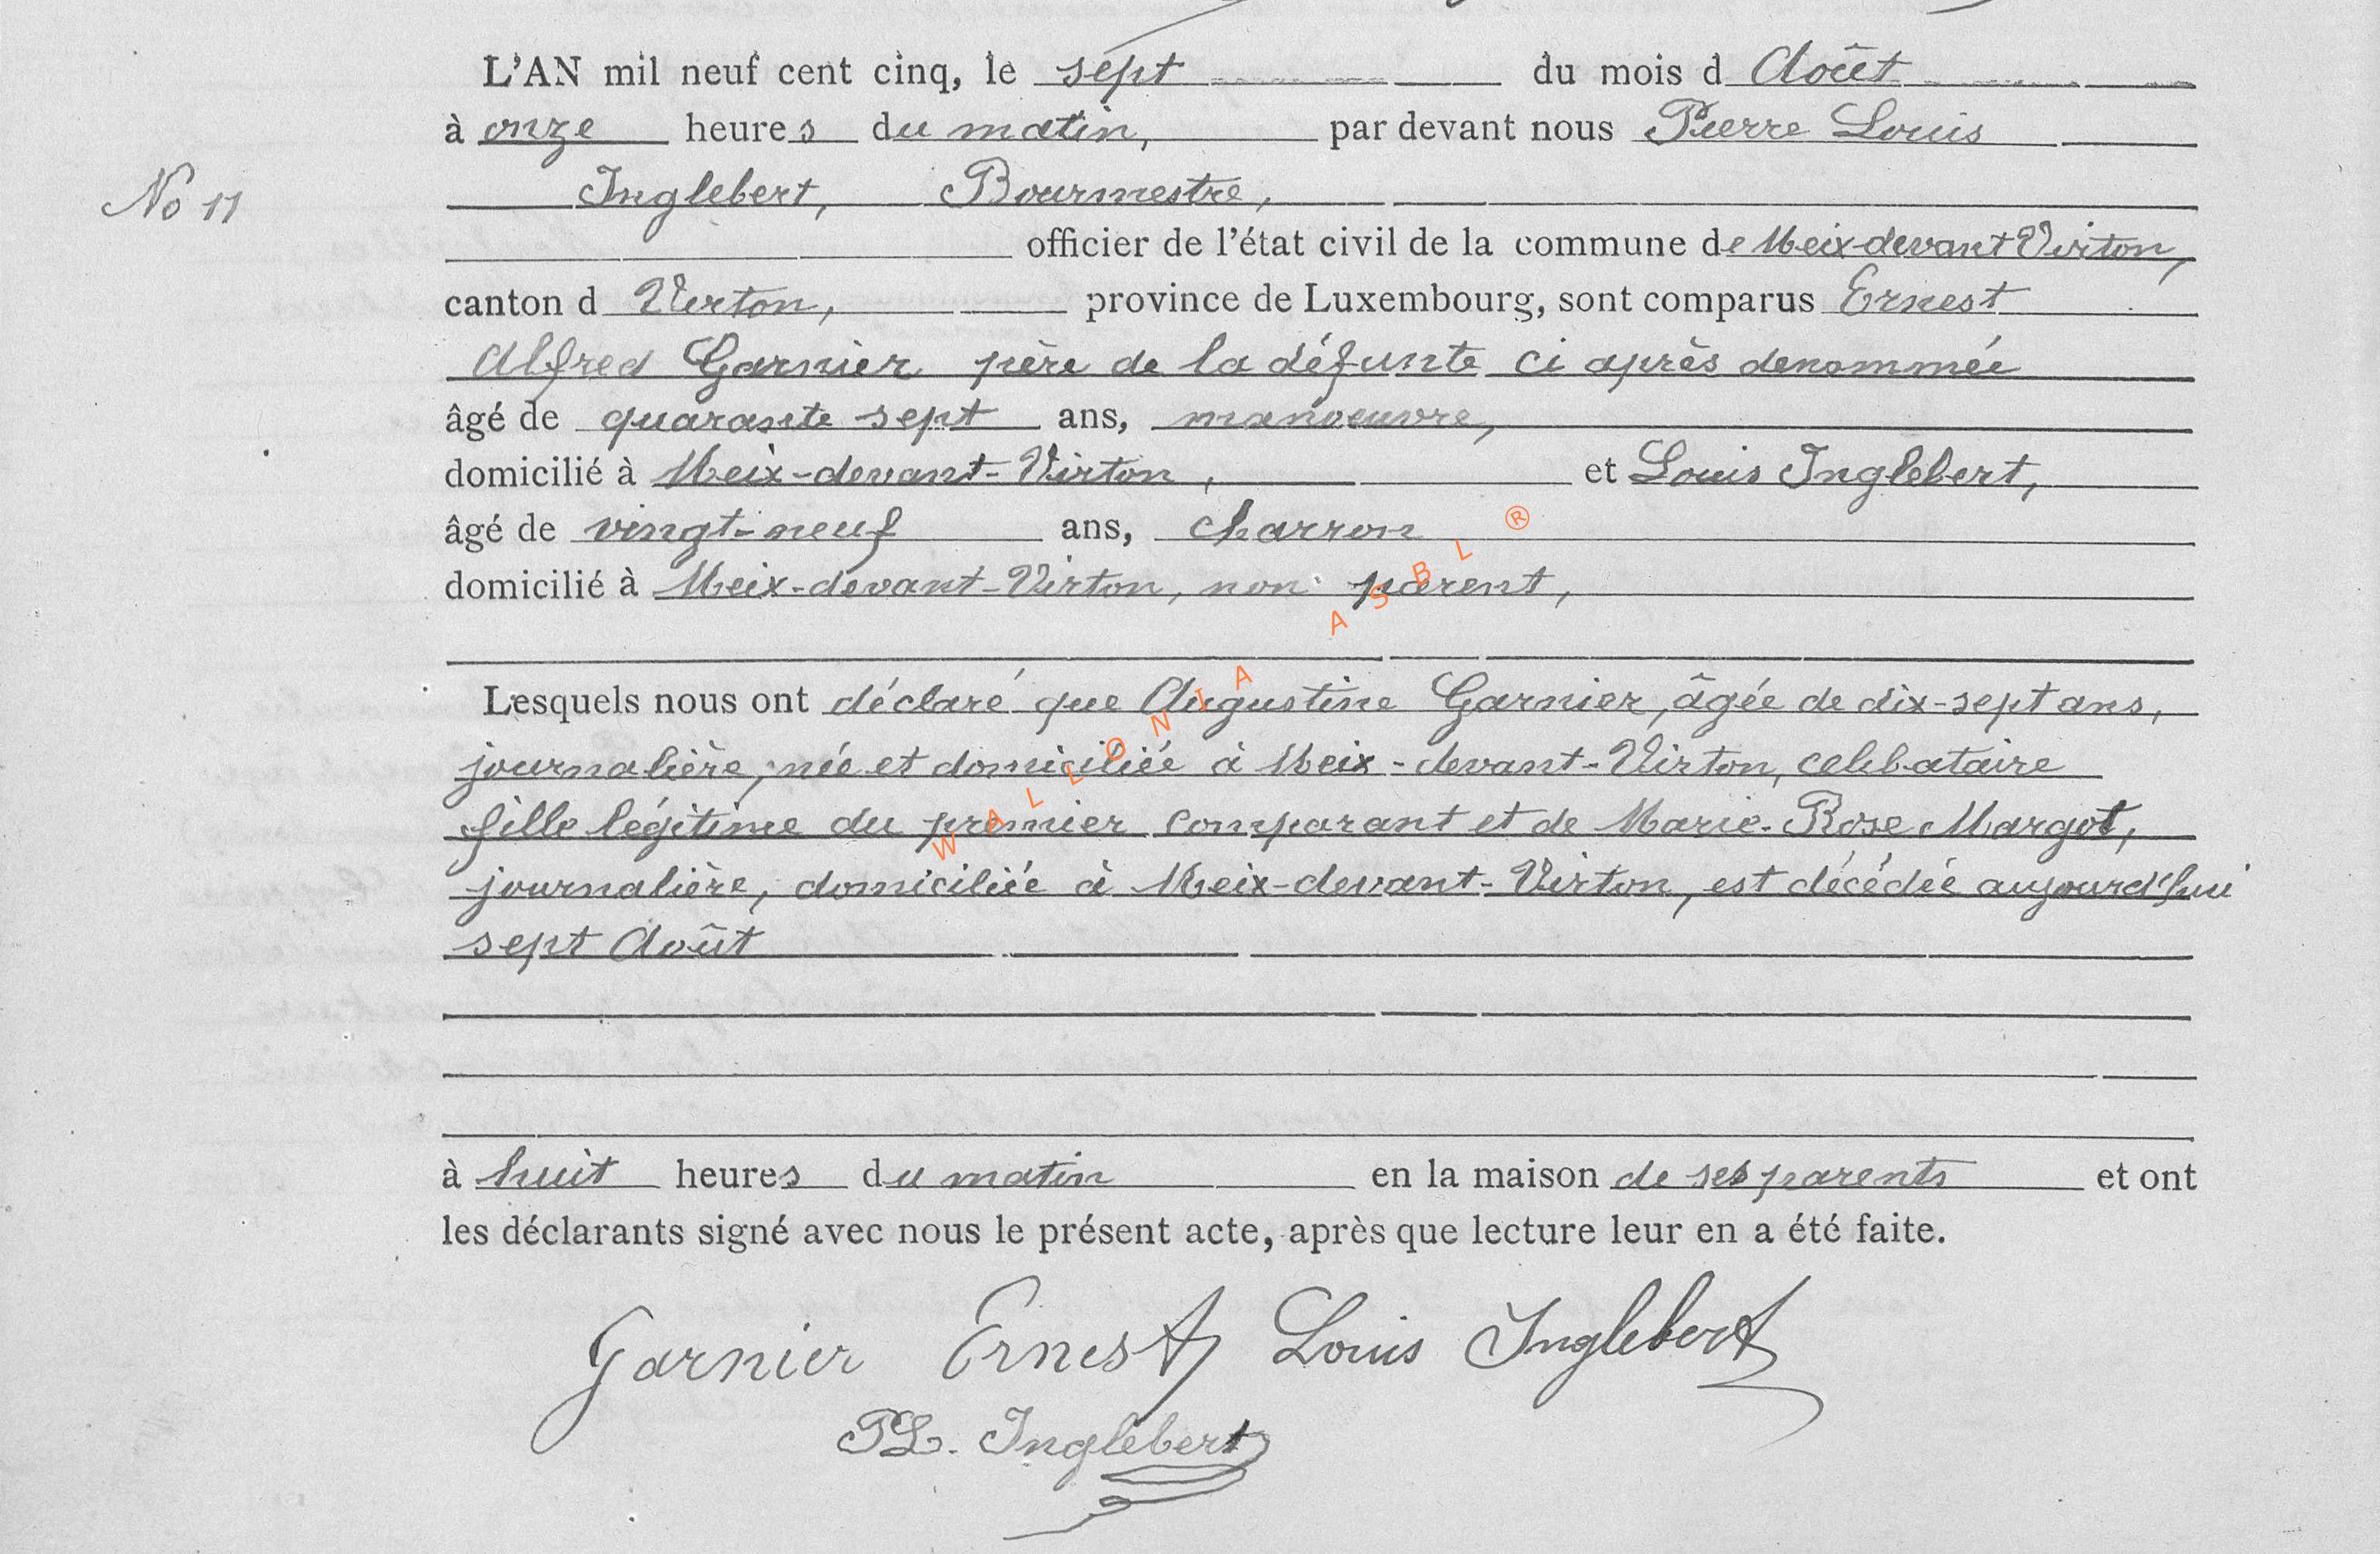 L'AN mil neuf cent cinq, le sept du mois d Août
à onze heures du matin, par devant nous Pierre Louis
No 11
Inglebert, Bourmestre,
officier de l'état civil de la commune de Meix-devant Virton,
canton d Virton, province de Luxembourg, sont comparus Ernest
Alfred Garnier père de la défunte ci après denommée
âgé de quarante sept ans, manoeuvre,
domicilié à Meix-devant-Virton, et Louis Inglebert,
âgé de vingt-neuf ans, charron
domicilié à Meix-devant-Virton, non parent,
Lesquels nous ont déclaré que Augustine Garnier, âgée de dix-sept ans,
journalière, née et domiciliée à Meix-devant-Virton, celibataire
fille légitime du premier comparant et de Marie-Rose Margot,
journalière, domiciliée à Meix-devant-Virton, est décédée aujourd'hui
sept Août
à huit heures du matin en la maison de ses parents et ont
les déclarants signé avec nous le présent acte, après que lecture leur en a été faite.
Garnier Ernest Louis Inglebert
PL. Inglebert
WALLONIA ASBL ®